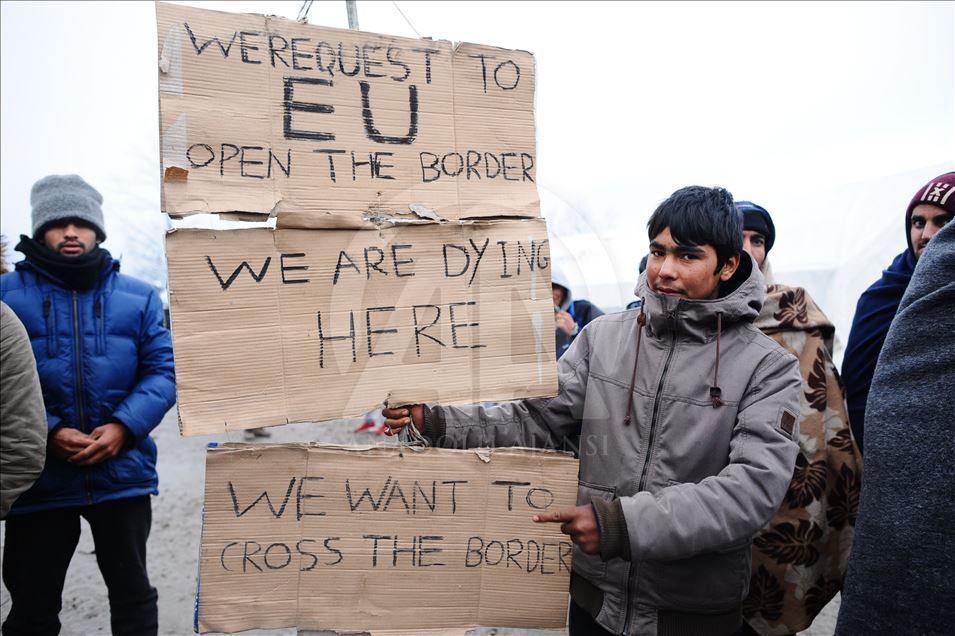 WE REQUEST TO
EU
OPEN THE BORDER
WE ARE DYING
HERE
AA
ANADOLU AJANSI
WE WANT TO
CROSS THE BORDER